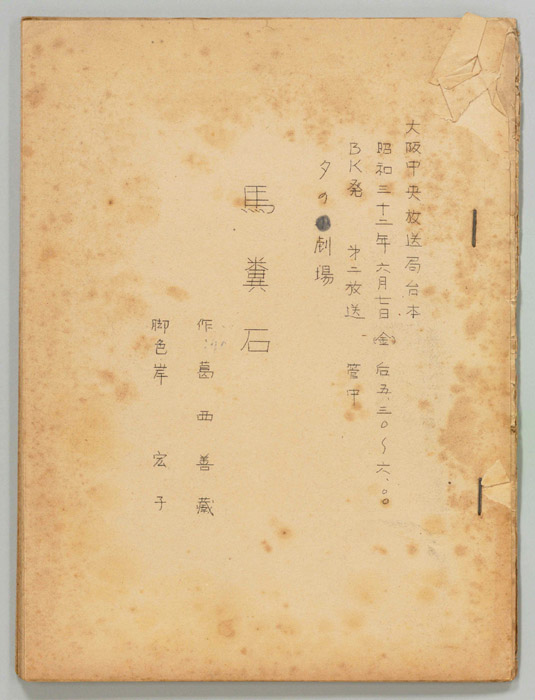 大阪中央放送局台本
昭和三十二年六月七日(金)后五.三〇〜六.〇〇
BK発 才二放送 管中
夕の劇場
馬糞石
作 葛西善蔵
脚色岸 宏子